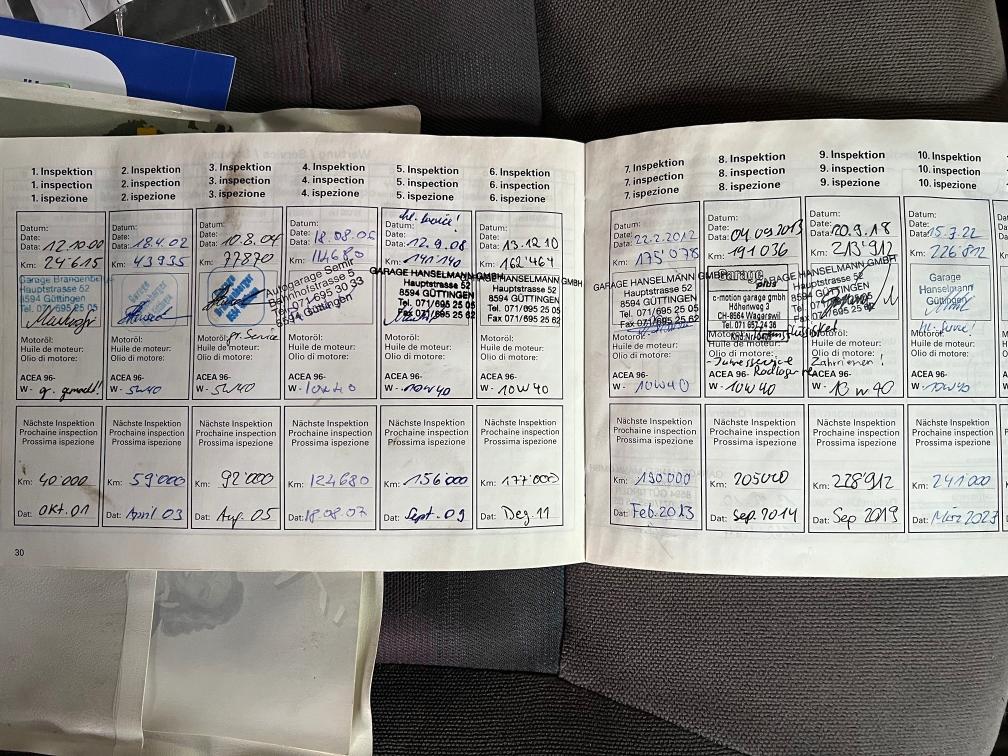 1. Inspektion
1. inspection
1. ispezione
Datum:
Date:
Data: 12.10.00
Km: 24'615
Garage Brandenberger
Hauptstrasse 52
8594 Güttingen
Tel. 071/695 25 05
Motoröl:
Huile de moteur:
Olio di motore:
ACEA 96-
W - gr. gemacht!
Nächste Inspektion
Prochaine inspection
Prossima ispezione
Km: 40'000
Dat: Okt. 01
2. Inspektion
2. inspection
2. ispezione
Datum:
Date:
Data: 18.4.02
Km: 43'935
Motoröl:
Huile de moteur:
Olio di motore:
ACEA 96-
W - 5W40
Nächste Inspektion
Prochaine inspection
Prossima ispezione
Km: 59'000
Dat: April 03
3. Inspektion
3. inspection
3. ispezione
Datum:
Date:
Data: 10.8.04
Km: 77870
Motoröl: gr. Service
Huile de moteur:
Olio di motore:
ACEA 96-
W - 5W40
Nächste Inspektion
Prochaine inspection
Prossima ispezione
Km: 92'000
Dat: Aug. 05
4. Inspektion
4. inspection
4. ispezione
Datum:
Date:
Data: 18.08.06
Km: 114680
Autogarage Semir
Bahnhofstrasse 5
Tel. 071 695 30 33
8594 Güttingen
Motoröl:
Huile de moteur:
Olio di motore:
ACEA 96-
W - 10W40
Nächste Inspektion
Prochaine inspection
Prossima ispezione
Km: 124680
Dat: 18.08.07
5. Inspektion
5. inspection
5. ispezione
Datum:
Date:
Data: 12.9.08
Km: 141'140
GARAGE HANSELMANN GMBH
Hauptstrasse 52
8594 GÜTTINGEN
Tel. 071/695 25 05
Fax 071/695 25 62
Motoröl:
Huile de moteur:
Olio di motore:
ACEA 96-
W - 10W40
Nächste Inspektion
Prochaine inspection
Prossima ispezione
Km: 156'000
Dat: Sept. 09
6. Inspektion
6. inspection
6. ispezione
Datum:
Date:
Data: 13.12.10
Km: 162'464
GARAGE HANSELMANN GMBH
Hauptstrasse 52
8594 GÜTTINGEN
Tel. 071/695 25 05
Fax 071/695 25 62
Motoröl:
Huile de moteur:
Olio di motore:
ACEA 96-
W - 10W40
Nächste Inspektion
Prochaine inspection
Prossima ispezione
Km: 177'000
Dat: Dez. 11
30
7. Inspektion
7. inspection
7. ispezione
Datum:
Date:
Data: 22.2.2012
Km: 175'078
GARAGE HANSELMANN GMBH
Hauptstrasse 52
8594 GÜTTINGEN
Tel. 071/695 25 05
Fax 071/695 25 62
Motoröl:
Huile de moteur:
Olio di motore:
ACEA 96-
W - 10W40
Nächste Inspektion
Prochaine inspection
Prossima ispezione
Km: 190'000
Dat: Feb. 2013
8. Inspektion
8. inspection
8. ispezione
Datum:
Date:
Data: 04.09.2013
Km: 191036
Garage
plus
c-motion garage gmbh
Höhenweg 3
CH-8564 Wagerswil
Tel. 071 657 24 36
Motoröl:
Huile de moteur:
Olio di motore:
-Jahresservice
ACEA 96-
W - 10W40
Nächste Inspektion
Prochaine inspection
Prossima ispezione
Km: 205000
Dat: Sep. 2014
9. Inspektion
9. inspection
9. ispezione
Datum:
Date:
Data: 20.9.18
Km: 213'912
GARAGE HANSELMANN GMBH
Hauptstrasse 52
8594 GÜTTINGEN
Tel. 071/695 25 05
Fax 071/695 25 62
Motoröl:
Huile de moteur:
Olio di motore:
Zahnriemen!
ACEA 96-
W - 10W40
Nächste Inspektion
Prochaine inspection
Prossima ispezione
Km: 228'912
Dat: Sep 2019
10. Inspektion
10. inspection
10. ispezione
Datum:
Date:
Data: 15.7.22
Km: 226'812
Garage
Hanselmann
Güttingen
Motoröl:
Huile de moteur:
Olio di motore:
ACEA 96-
W - 10W40
Nächste Inspektion
Prochaine inspection
Prossima ispezione
Km: 241'000
Dat: März 2023